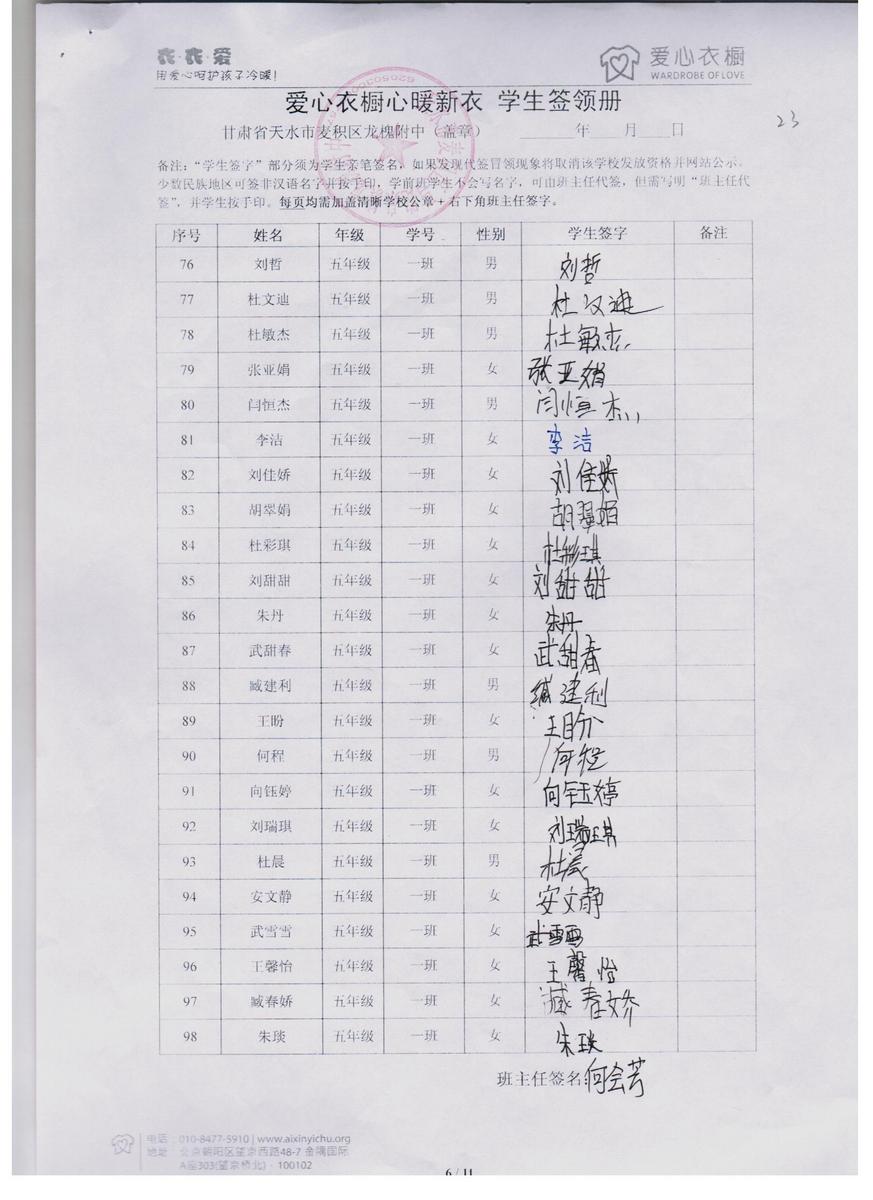 衣·衣·爱
用爱心呵护孩子冷暖!
爱心衣橱
WARDROBE OF LOVE
爱心衣橱心暖新衣 学生签领册
23
甘肃省天水市麦积区龙槐附中（盖章） 年 月 日
备注：“学生签字”部分须为学生亲笔签名，如果发现代签冒领现象将取消该学校发放资格并网站公示。
少数民族地区可签非汉语名字并按手印，学前班学生不会写名字，可由班主任代签，但需写明“班主任代
签”，并学生按手印。每页均需加盖清晰学校公章+右下角班主任签字。
序号 姓名 年级 学号 性别 学生签字 备注
76 刘哲 五年级 一班 男 刘哲
77 杜文迪 五年级 一班 男 杜文迪
78 杜敏杰 五年级 一班 男 杜敏杰
79 张亚娟 五年级 一班 女 张亚娟
80 闫恒杰 五年级 一班 男 闫恒杰
81 李洁 五年级 一班 女 李洁
82 刘佳娇 五年级 一班 女 刘佳娇
83 胡翠娟 五年级 一班 女 胡翠娟
84 杜彩琪 五年级 一班 女 杜彩琪
85 刘甜甜 五年级 一班 女 刘甜甜
86 朱丹 五年级 一班 女 朱丹
87 武甜春 五年级 一班 女 武甜春
88 臧建利 五年级 一班 男 臧建利
89 王盼 五年级 一班 女 王盼
90 何程 五年级 一班 男 何程
91 向钰婷 五年级 一班 女 向钰婷
92 刘瑞琪 五年级 一班 女 刘瑞琪
93 杜晨 五年级 一班 男 杜晨
94 安文静 五年级 一班 女 安文静
95 武雪雪 五年级 一班 女 武雪雪
96 王馨怡 五年级 一班 女 王馨怡
97 臧春娇 五年级 一班 女 臧春娇
98 朱琰 五年级 一班 女 朱琰
班主任签名:何会芳
电话：010-8477-5910 | www.aixinyichu.org
地址：北京朝阳区望京西路48-7 金隅国际
A座303(望京桥北)·100102
6 / 11